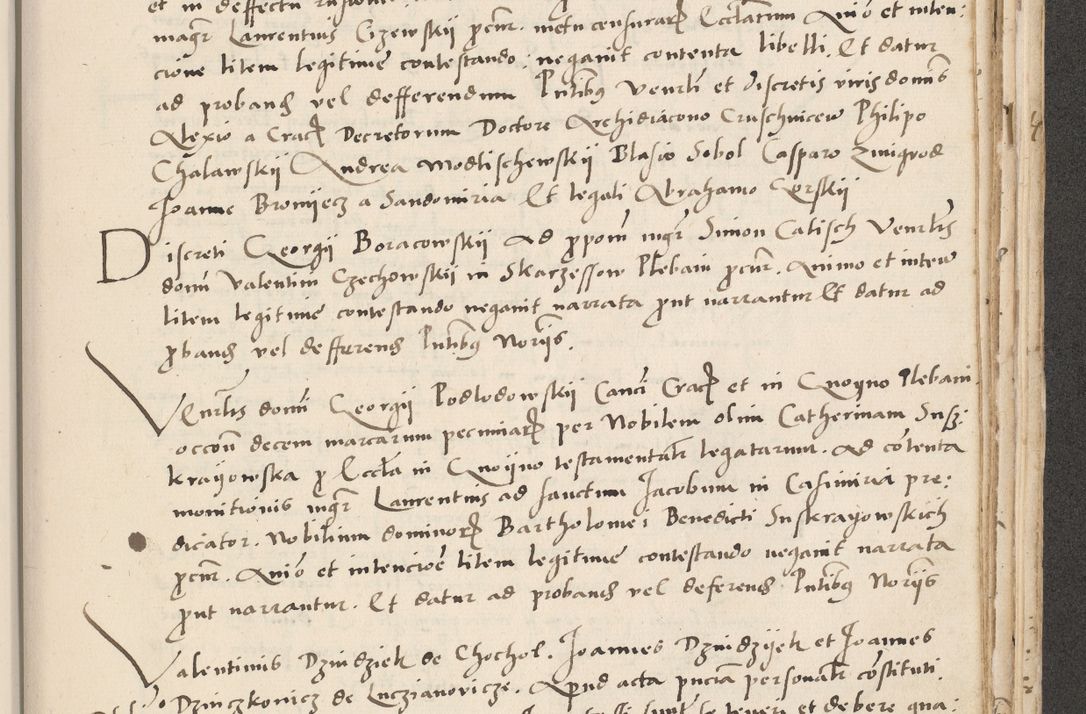 magr Laurentius Czewskij pcur. metu censurar Eccliarum Anio et inten:
cione litem legitime contestando: negavit contenta libelli. Et datur
ad proband vel defferendum Pntibus Venrli et discretis viris domis
Alexio a Crac Decretorum Doctore Archidiacono Cruschvicew Philipo
Chalawskij Andrea Modlischewskij Blasio Sobol Casparo Zmigrod
Joanne Bromijecz a Sandomiria Et legali Abrahamo Gorskij
Discreti Georgij Boracowskij Ad ppom mgr Simon Calisch Venrlis
domi Valentini Czechowskij in Skarzessow Plebani pcur. Animo et inten
litem legitime contestando negavit narrata put narrantur Et datur ad
pband vel defferend Pntibus Noriis.
Venrlis domi Georgij Podlodowskij Canci Crac et in Gnoyno Plebani
occon decem marcarum pecuniar per Nobilem olim Catherinam Susz:
krayowska p Eccla in Gnoyno testamentalr legatarum. Ad cotenta
monitionis mgr Laurentius ad sanctum Jacobum in Casimiria pre:
dicator. Nobilium dominor Bartholomei Benedicti Suskrayowskich
pcur. Anio et intencioe litem legitime contestando negavit narrata
put narrantur. Et datur ad proband vel deferend Pntibus Noriis
Valentinus Dzindziek de Chochol. Joannes Dzindzijek et Joannes
Dzinczkonicz de Luczianovicze. Apud acta pncia personalr costituti.